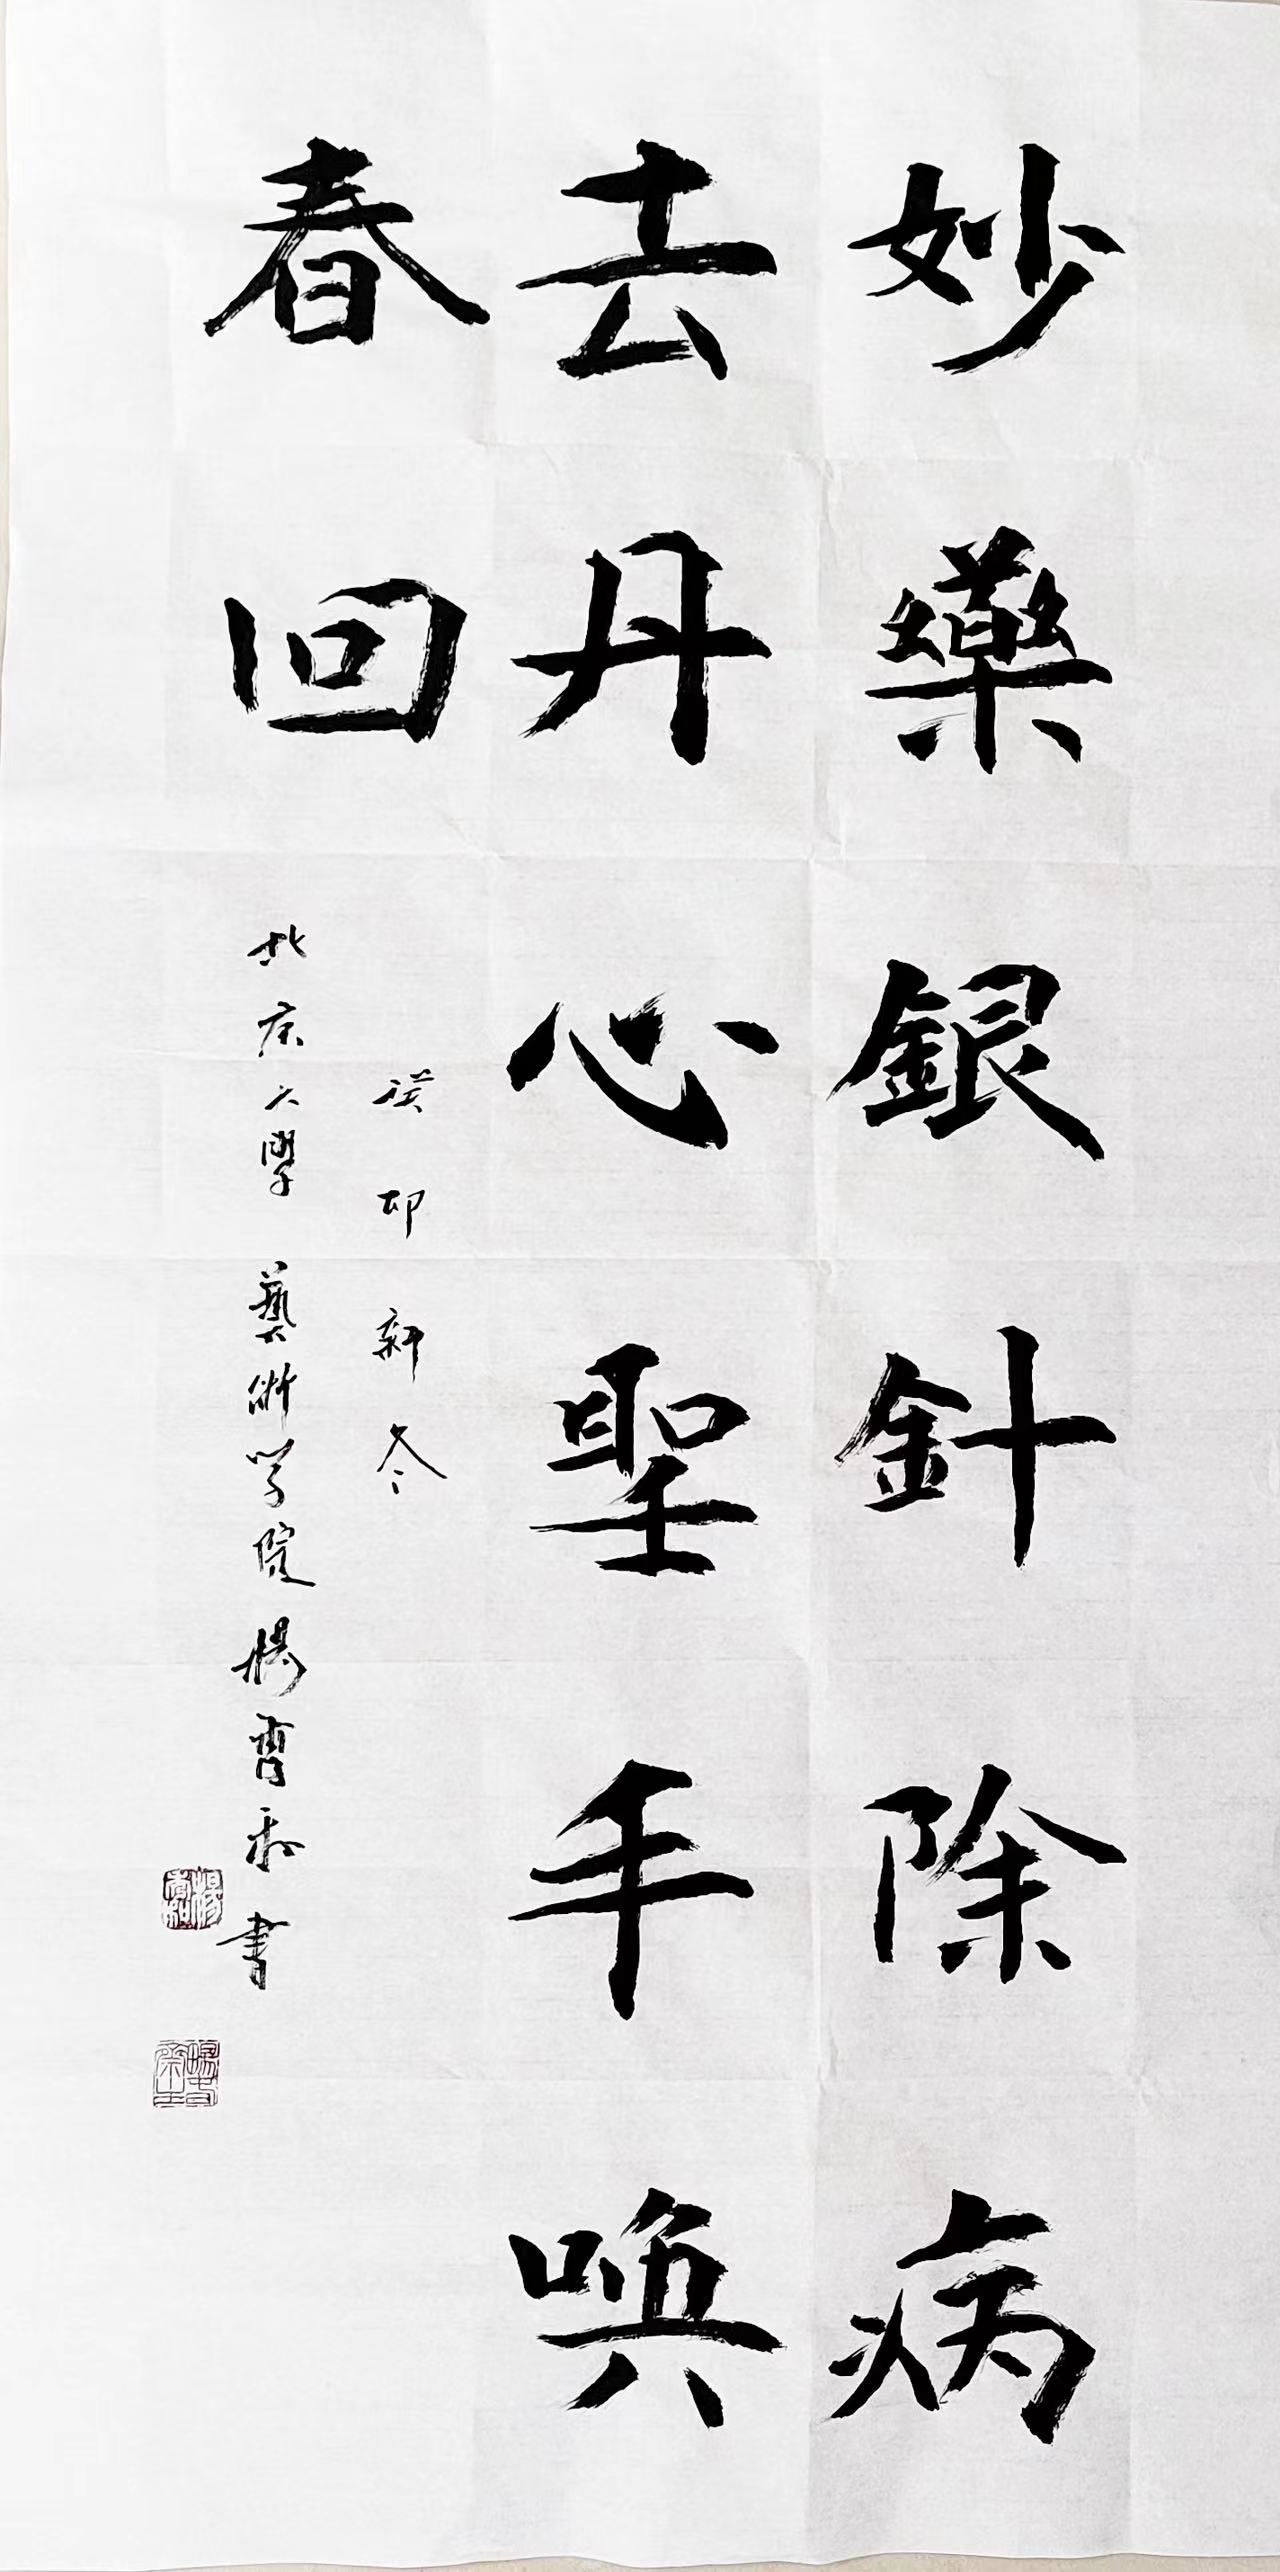 妙藥銀針除病
去丹心聖手唤
春回
癸卯新冬
北京大學藝術学院楊育和書